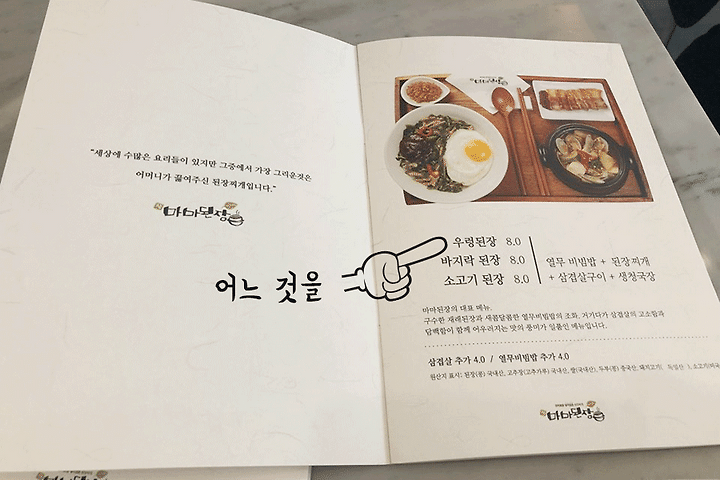 "세상에 수많은 요리들이 있지만 그중에서 가장 그리운것은
어머니가 끓여주신 된장찌개입니다."
마마된장
어느 것을
우렁된장 8.0
바지락 된장 8.0
소고기 된장 8.0
열무 비빔밥 + 된장찌개
+ 삼겹살구이 + 생청국장
마마된장의 대표 메뉴.
구수한 재래된장과 새콤달콤한 열무비빔밥의 조화. 거기다가 삼겹살의 고소함과
담백함이 함께 어우러지는 맛의 풍미가 일품인 메뉴입니다.
삼겹살 추가 4.0 / 열무비빔밥 추가 4.0
원산지 표시: 된장(콩) 국내산, 고추장(고추가루) 국내산, 쌀(국내산), 두부(콩) 중국산, 돼지고기( 독일산 ), 소고기(미국
마마된장